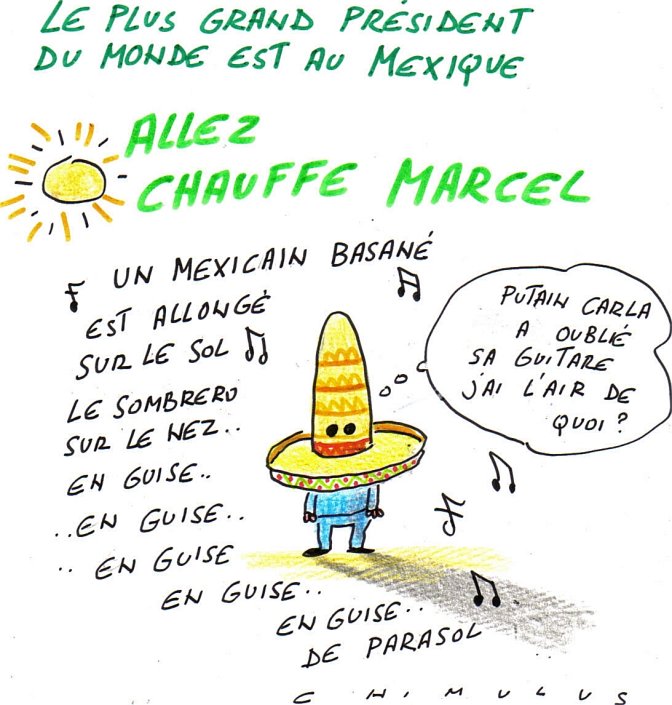 LE PLUS GRAND PRÉSIDENT
DU MONDE EST AU MEXIQUE
ALLEZ
CHAUFFE MARCEL
UN MEXICAIN BASANÉ
EST ALLONGÉ
SUR LE SOL
LE SOMBRERO
SUR LE NEZ..
EN GUISE..
..EN GUISE..
.. EN GUISE
EN GUISE..
EN GUISE..
DE PARASOL
PUTAIN CARLA
A OUBLIÉ
SA GUITARE
J'AI L'AIR DE
QUOI ?
CHIMULUS